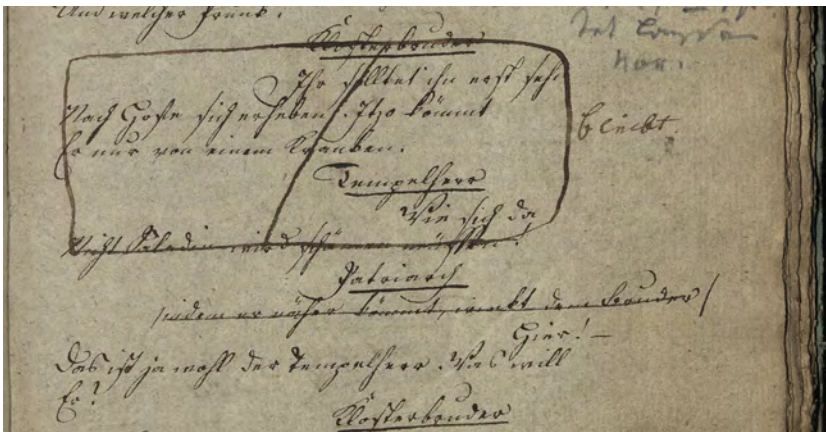 Und welcher Prunk!
Klosterbruder
Ihr solltet ihn erst sehn
Nach Hofe sich erheben. Itzo kömmt
Er nur von einem Kranken.
bleibt.
Tempelherr
Wie sich da
Nicht Saladin wird schämen müssen!
Patriarch
/indem er näher kömmt, winkt dem Bruder/
Hier! –
Das ist ja wohl der Tempelherr. Was will
Er?
Klosterbruder